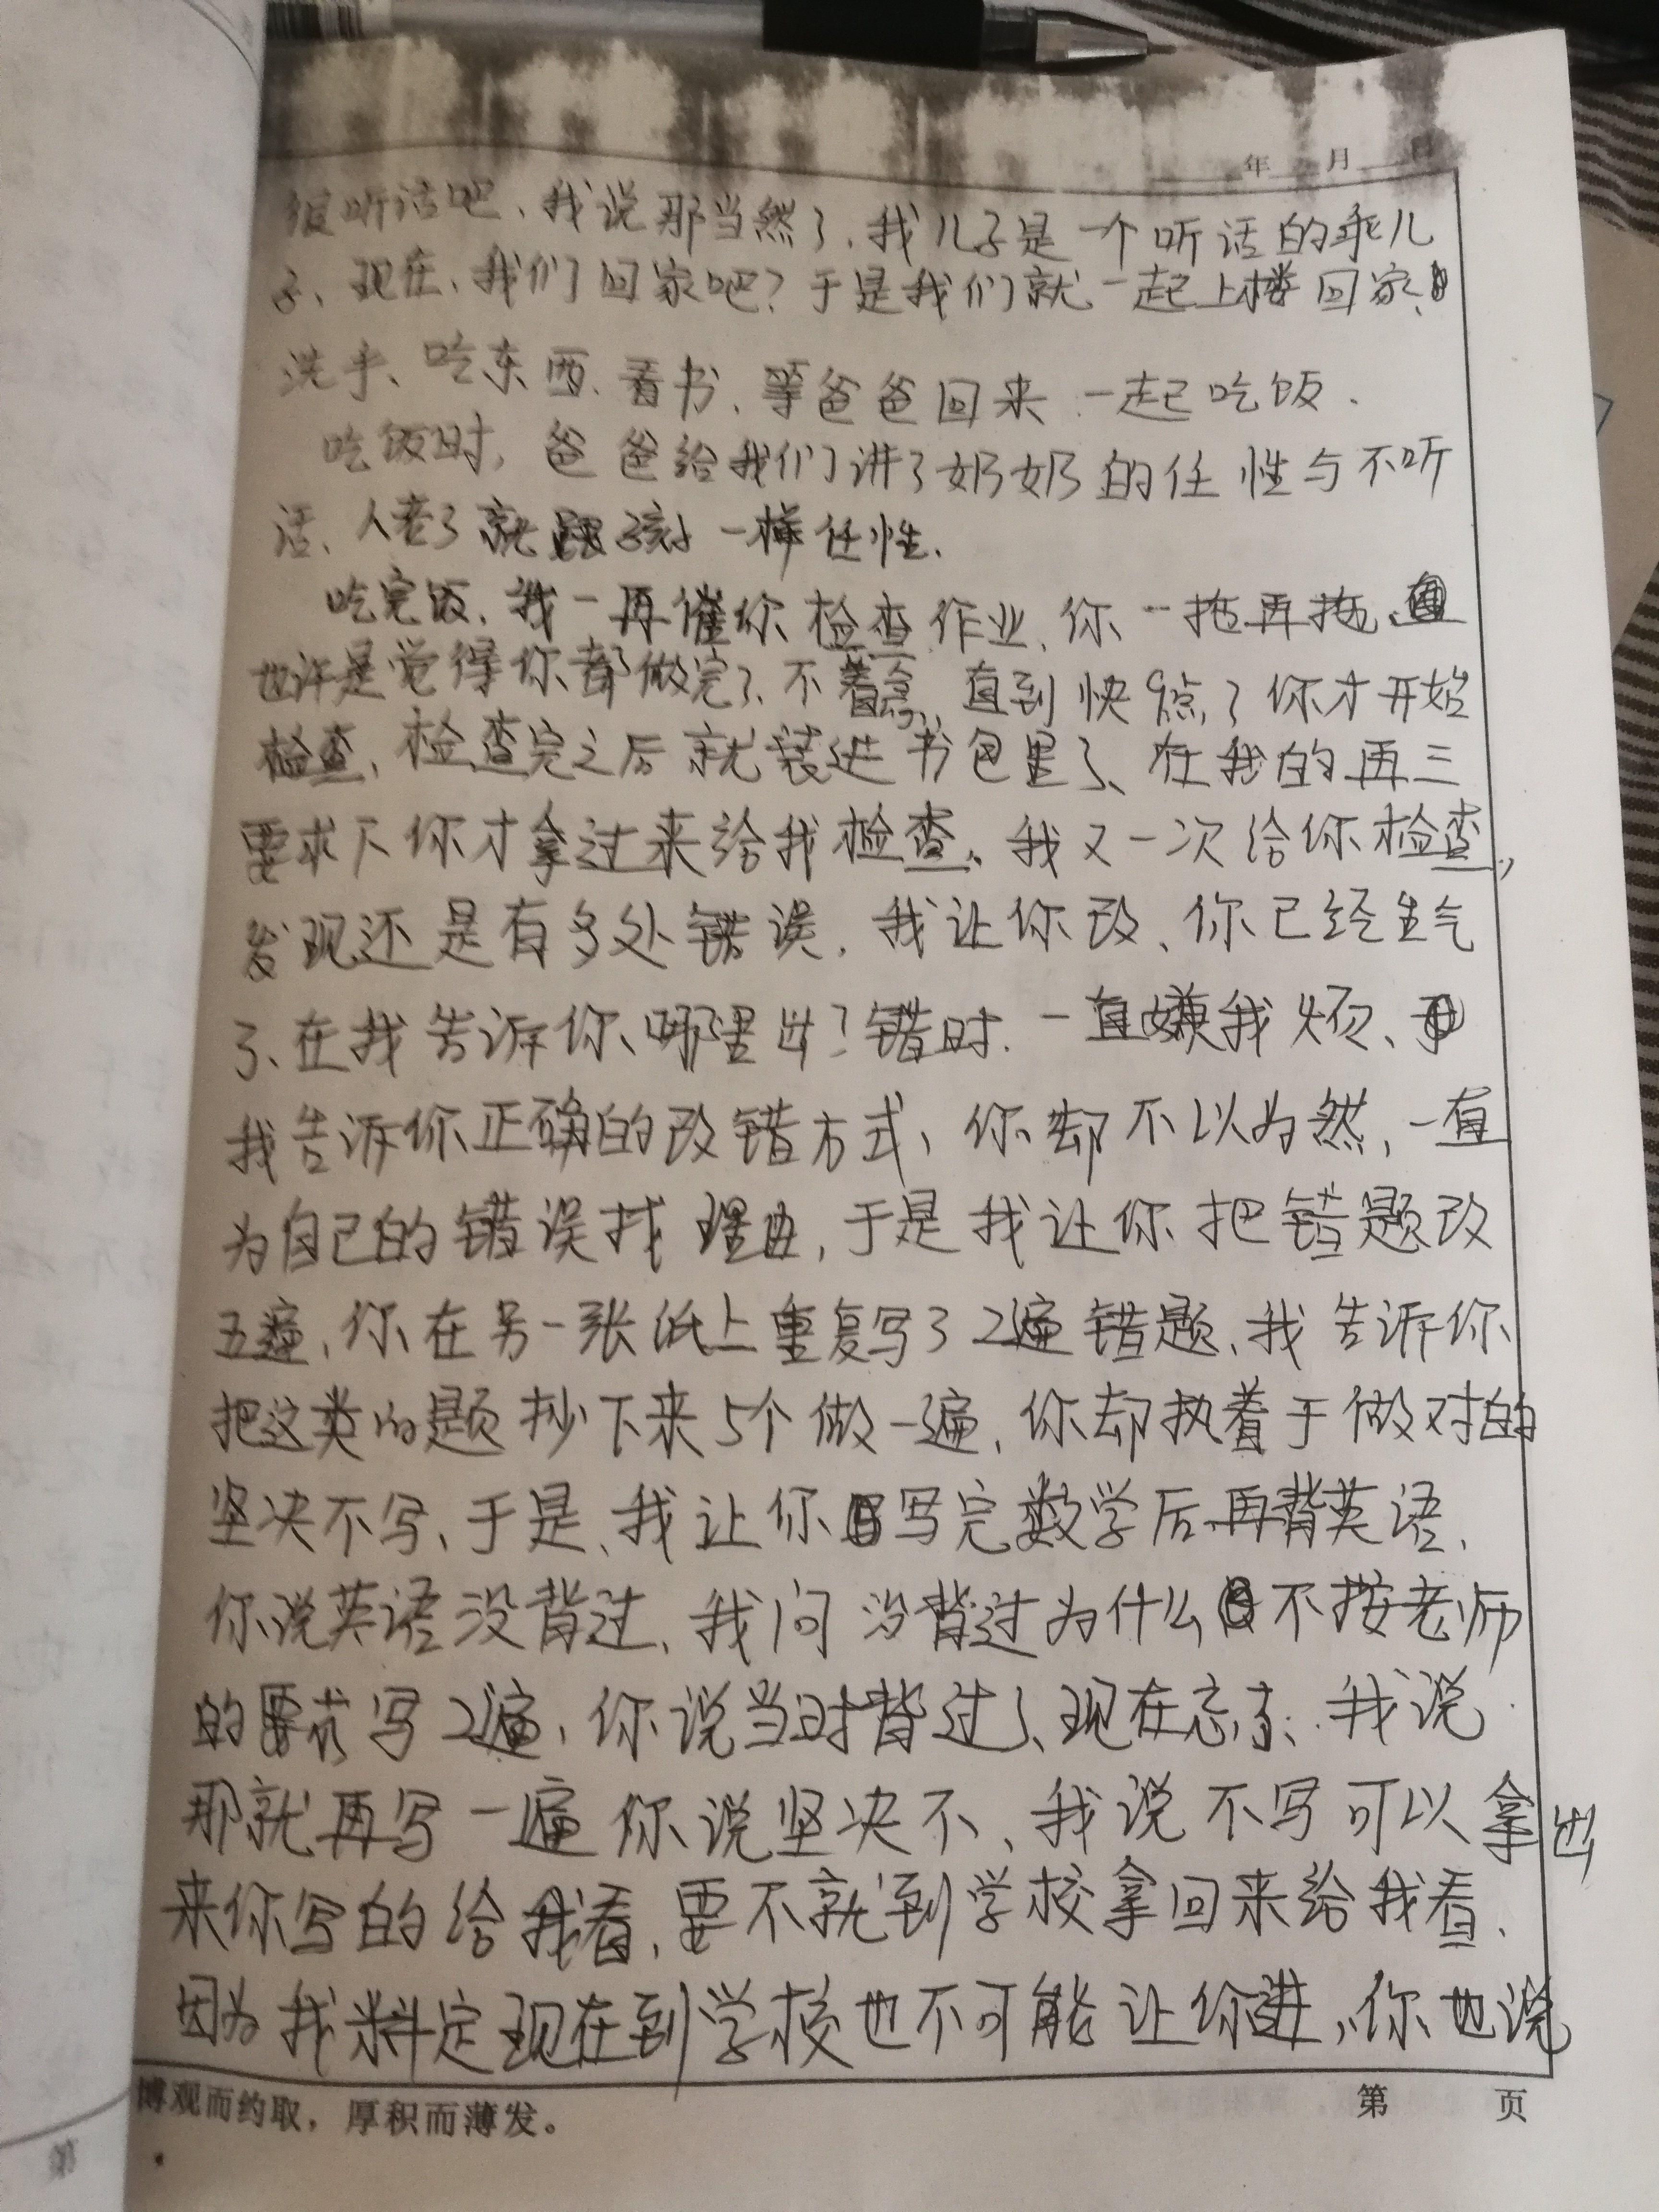 年 月 日
很听话吧、我说那当然了、我儿子是一个听话的乖儿
子、现在、我们回家吧？于是我们就一起上楼回家、
洗手、吃东西、看书、等爸爸回来一起吃饭.
吃饭时，爸爸给我们讲了奶奶的任性与不听
话、人老了就跟孩子一样任性.
吃完饭、我一再催你检查作业、你一拖再拖、
也许是觉得你都做完了、不着急、直到快9点了你才开始
检查、检查完之后就装进书包里了、在我的再三
要求下你才拿过来给我检查、我又一次给你检查，
发现还是有多处错误，我让你改、你已经生气
了、在我告诉你、哪里出了错时、一直嫌我烦、
我告诉你正确的改错方式、你却不以为然，一直
为自己的错误找理由，于是我让你把错题改
五遍，你在另一张纸上重复写了2遍错题、我告诉你
把这类的题抄下来5个做一遍，你却执着于做对的
坚决不写、于是、我让你写完数学后再背英语、
你说英语没背过、我问没背过为什么不按老师
的要求写2遍，你说当时背过了、现在忘了、我说
那就再写一遍你说坚决不、我说不写可以拿出
来你写的给我看，要不就到学校拿回来给我看、
因为我料定现在到学校也不可能让你进，你也说
博观而约取，厚积而薄发。 第 页